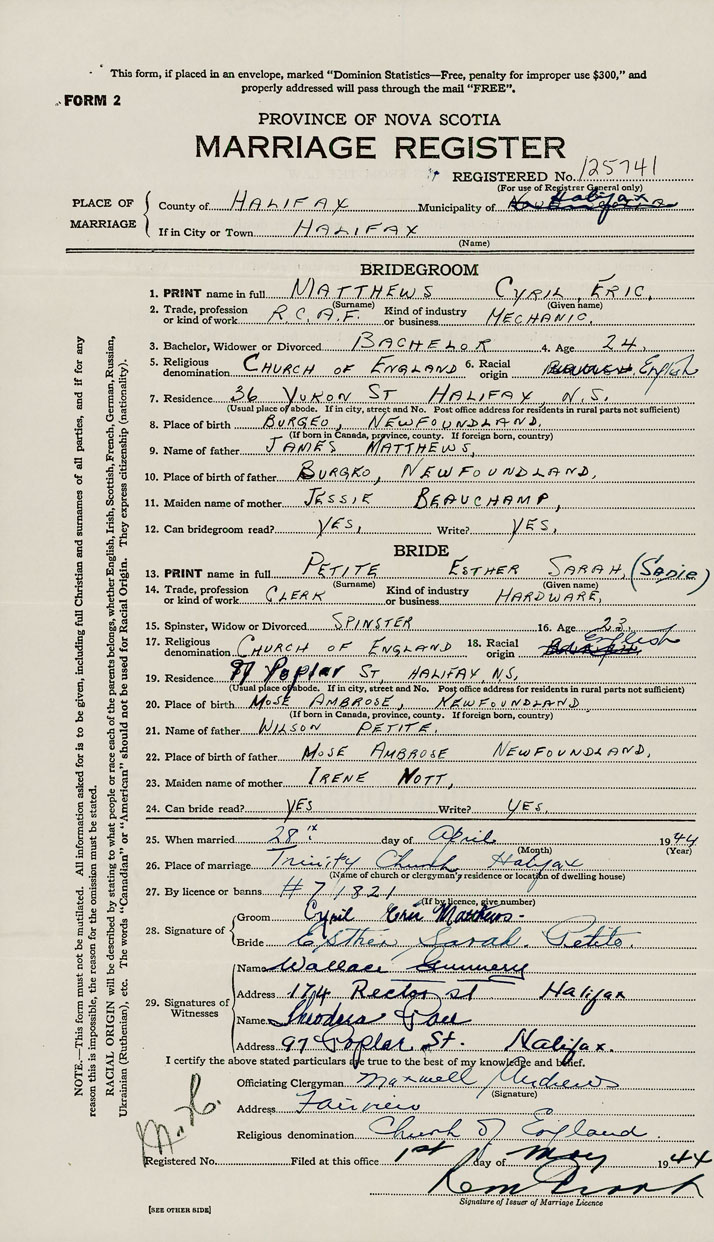 This form, if placed in an envelope, marked "Dominion Statistics—Free, penalty for improper use $300," and
properly addressed will pass through the mail "FREE".
FORM 2
PROVINCE OF NOVA SCOTIA
MARRIAGE REGISTER
REGISTERED No. 125741
(For use of Registrar General only)
PLACE OF MARRIAGE
County of HALIFAX Municipality of Halifax
If in City or Town HALIFAX
(Name)
BRIDEGROOM
1. PRINT name in full MATTHEWS CYRIL ERIC.
(Surname) (Given name)
2. Trade, profession or kind of work R.C.A.F. Kind of industry or business MECHANIC.
3. Bachelor, Widower or Divorced BACHELOR 4. Age 24.
5. Religious denomination CHURCH OF ENGLAND 6. Racial origin English
7. Residence 36 YUKON ST HALIFAX, N.S.
(Usual place of abode. If in city, street and No. Post office address for residents in rural parts not sufficient)
8. Place of birth BURGEO, NEWFOUNDLAND.
(If born in Canada, province, county. If foreign born, country)
9. Name of father JAMES MATTHEWS,
10. Place of birth of father BURGEO, NEWFOUNDLAND,
11. Maiden name of mother JESSIE BEAUCHAMP,
12. Can bridegroom read? YES, Write? YES.
BRIDE
13. PRINT name in full PETITE ESTHER SARAH, (Sadie)
(Surname) (Given name)
14. Trade, profession or kind of work CLERK Kind of industry or business HARDWARE,
15. Spinster, Widow or Divorced SPINSTER 16. Age 23.
17. Religious denomination CHURCH OF ENGLAND 18. Racial origin English
19. Residence 97 Poplar ST, HALIFAX, NS,
(Usual place of abode. If in city, street and No. Post office address for residents in rural parts not sufficient)
20. Place of birth MOSE AMBROSE, NEWFOUNDLAND
(If born in Canada, province, county. If foreign born, country)
21. Name of father WILSON PETITE.
22. Place of birth of father MOSE AMBROSE NEWFOUNDLAND,
23. Maiden name of mother IRENE NOTT,
24. Can bride read? YES Write? YES,
25. When married 28th day of April 1944
(Month) (Year)
26. Place of marriage Trinity Church Halifax
(Name of church or clergyman's residence or location of dwelling house)
27. By licence or banns # 71821
(If by licence, give number)
28. Signature of
Groom Cyril Eric Matthews.
Bride Esther Sarah Petite.
29. Signatures of Witnesses
Name Wallace
Address 174 Rector st Halifax
Name
Address 97 Poplar St. Halifax.
I certify the above stated particulars are true to the best of my knowledge and belief.
Officiating Clergyman Maxwell Andrews
(Signature)
Address Fairview
Religious denomination Church of England.
Registered No. Filed at this office 1st day of May 1944
Signature of Issuer of Marriage Licence
[SEE OTHER SIDE]
NOTE.—This form must not be mutilated. All information asked for is to be given, including full Christian and surnames of all parties, and if for any
reason this is impossible, the reason for the omission must be stated.
RACIAL ORIGIN will be described by stating to what people or race each of the parents belongs, whether English, Irish, Scottish, French, German, Russian,
Ukrainian (Ruthenian), etc. The words "Canadian" or "American" should not be used for Racial Origin. They express citizenship (nationality).